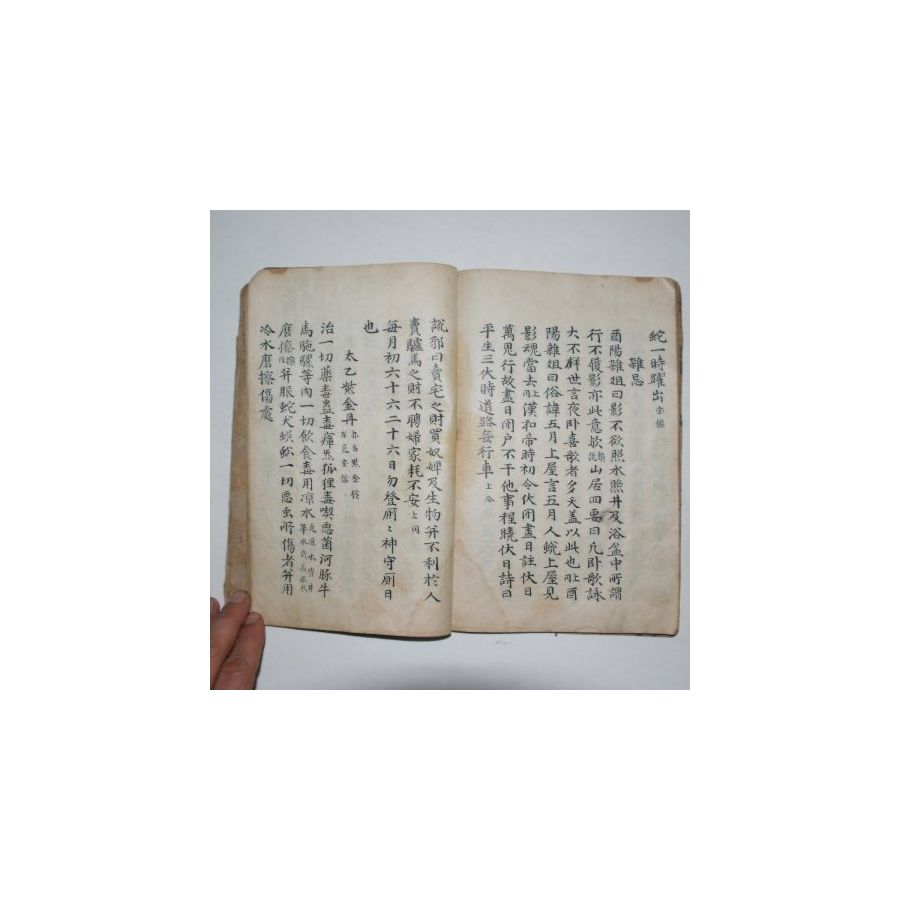 蛇一時躍出
雜忌
酉陽雜俎曰影不欲照水照井及浴盆中所謂
行不履影亦此意歟 山居四要曰凡卧歌詠
大不祥世言夜卧喜歌者多夭盖以此也 酉
陽雜俎曰俗諱五月上屋言五月人蛻上屋見
影魂當去 漢和帝時初令伏閉晝日註伏日
萬鬼行故盡日闭户不干他事程曉伏日詩曰
平生三伏時道路無行車
說郛曰賣宅之財買奴婢及生物并不利於人
賣驢馬之財不聘婦家耗不安 上同
每月初六十六二十六日勿登厠〻神守厠日
也
太乙紫金丹
治一切藥毒蠱毒瘴氣狐狸毒喫惡菌河豚牛
馬駞騾等肉一切飲食毒用凉水
磨 并服蛇犬蜈蚣一切惡虫所傷者并用
冷水磨擦傷處